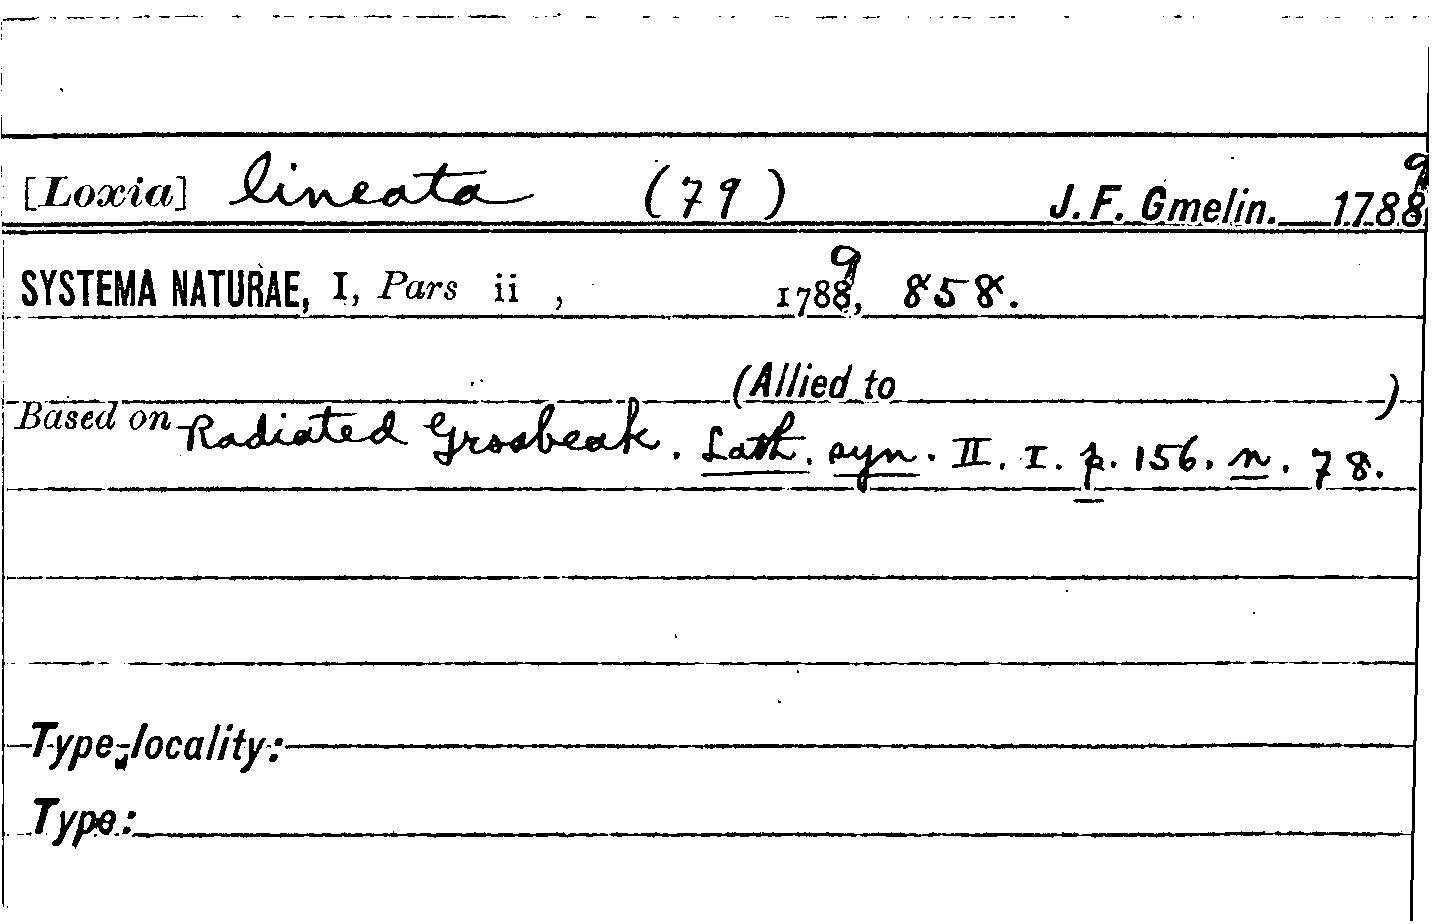 [Loxia] lineata (79) J. F. Gmelin. 1789
SYSTEMA NATURAE, I, Pars ii , 1789, 858.
(Allied to )
Based on Radiated Grosbeak. Lath. syn. II. I. p. 156. n. 78.
Type-locality:
Type: